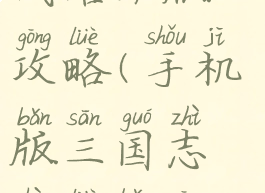 gōng lüè shǒu jī
攻略(手机
bǎn sān guó zhì
版三国志